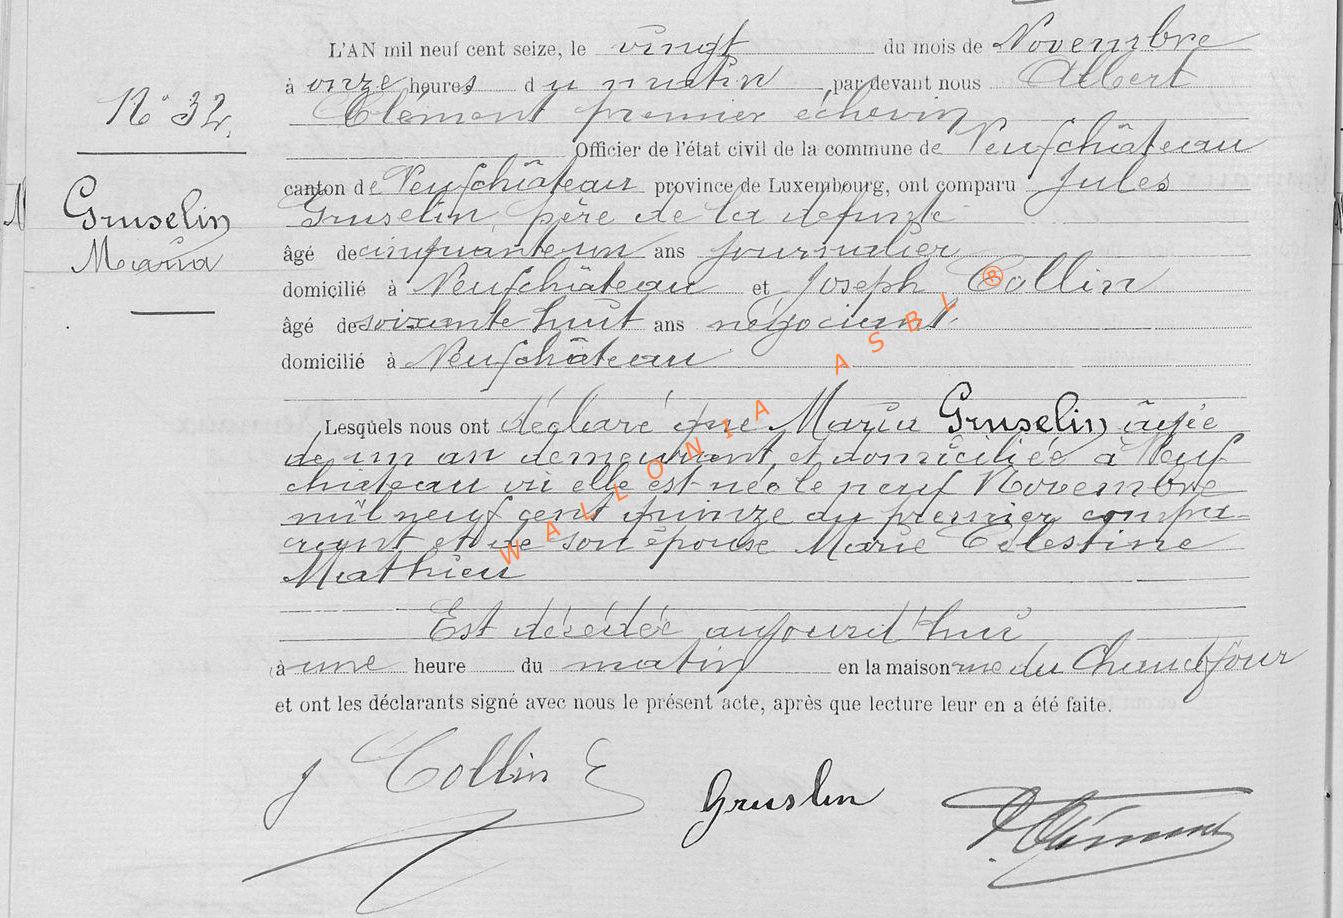 L'AN mil neuf cent seize, le vingt du mois de Novembre
à onze heures du matin, par devant nous Albert
Clément premier échevin
Officier de l'état civil de la commune de Neufchâteau
canton de Neufchâteau province de Luxembourg, ont comparu Jules
Gruselin, père de la defunte
âgé de cinquante un ans journalier
domicilié à Neufchâteau et Joseph Collin
âgé de soixante huit ans négociant
domicilié à Neufchâteau
Lesquels nous ont déclaré que Maria Gruselin âgée
de un an demeurant et domiciliée à Neuf
château où elle est née le neuf Novembre
mil neuf cent quinze du premier compa-
rant et de son épouse Marie Célestine
Mathieu
Est décédée aujourd'hui
à une heure du matin en la maison rue du Chaudfour
et ont les déclarants signé avec nous le présent acte, après que lecture leur en a été faite.
J Collin Gruslin A Clément
N° 32.
Gruselin
Maria
WALLONIA ASBL ®